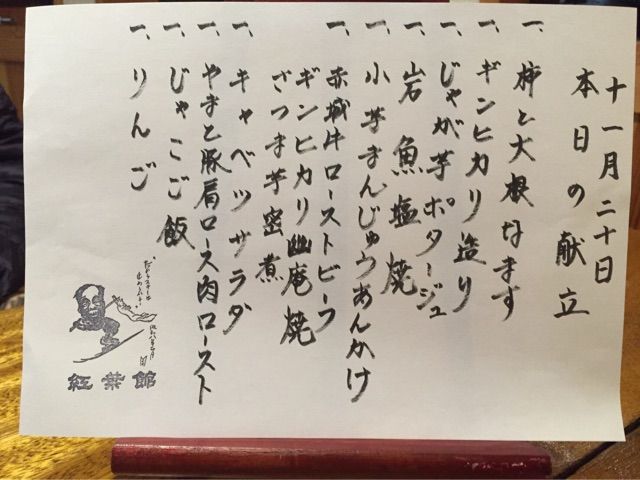 十一月二十日
本日の献立
一、柿と大根なます
一、ギンヒカリ造り
一、じゃが芋ポタージュ
一、岩魚塩焼
一、小芋まんじゅうあんかけ
一、赤城牛ローストビーフ
ギンヒカリ幽庵焼
さつま芋密煮
一、キャベツサラダ
一、やまと豚肩ロース肉ロースト
一、じゃこご飯
一、りんご
紅葉館